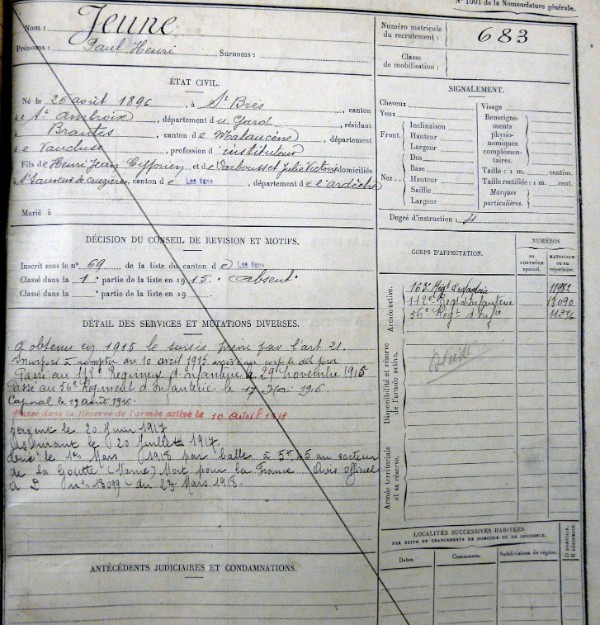 N° 1001 de la Nomenclature générale.
Nom : Jeune
Prénoms : Paul Henri Surnoms :
Numéro matricule du recrutement : 683
Classe de mobilisation :
ÉTAT CIVIL.
Né le 26 août 1896, à St Brès, canton
de St Ambroix, département du Gard, résidant
à Brantes, canton de Malaucène, département
de Vaucluse, profession d'instituteur
Fils de Henri Jean Cyprien et de Julie Victorine domiciliés
à St Sauveur de Cruzières, canton de Les Vans, département de l'ardèche
Marié à
SIGNALEMENT.
Cheveux
Yeux
Front. Inclinaison
Hauteur
Largeur
Nez. Dos
Base
Hauteur
Saillie
Largeur
Visage
Renseignements physionomiques complémentaires.
Taille : 1 m. centim.
Taille rectifiée : 1 m. cent.
Marques particulières.
Degré d'instruction :
DÉCISION DU CONSEIL DE RÉVISION ET MOTIFS.
Inscrit sous le n° 69 de la liste du canton de Les Vans
Classé dans la 1e partie de la liste en 1915. absent
Classé dans la partie de la liste en 19
DÉTAIL DES SERVICES ET MUTATIONS DIVERSES.
A obtenu en 1915 le sursis prévu par l'art 21.
à compter du 10 avril 1915
Passé au 112e Régiment d'Infanterie le 29 novembre 1915
Passé au 56e Régiment d'Infanterie le 17 1916
Caporal le 19 août 1916.
Passé dans la Réserve de l'armée active le 10 avril 1918
Sergent le 20 Juin 1917
Aspirant le 20 Juillet 1917.
le 1er Mars 1918 par balle à au secteur
de La (Marne) Mort pour la France. Avis officiel
du 27 Mars 1918.
CORPS D'AFFECTATION.
NUMÉROS
AU CONTRÔLE spécial.
MATRICULE OU AU répertoire.
Armée active.
163e Régt d'Infanterie
112e Régt d'Infanterie
56e Régt d'Infie
Disponibilité et réserve de l'armée active.
Armée territoriale et sa réserve.
LOCALITÉS SUCCESSIVES HABITÉES
PAR SUITE DE CHANGEMENTS DE DOMICILE OU DE RÉSIDENCE.
Dates. Communes. Subdivisions de région. D DOMICILE. R RÉSIDENCE.
ANTÉCÉDENTS JUDICIAIRES ET CONDAMNATIONS.